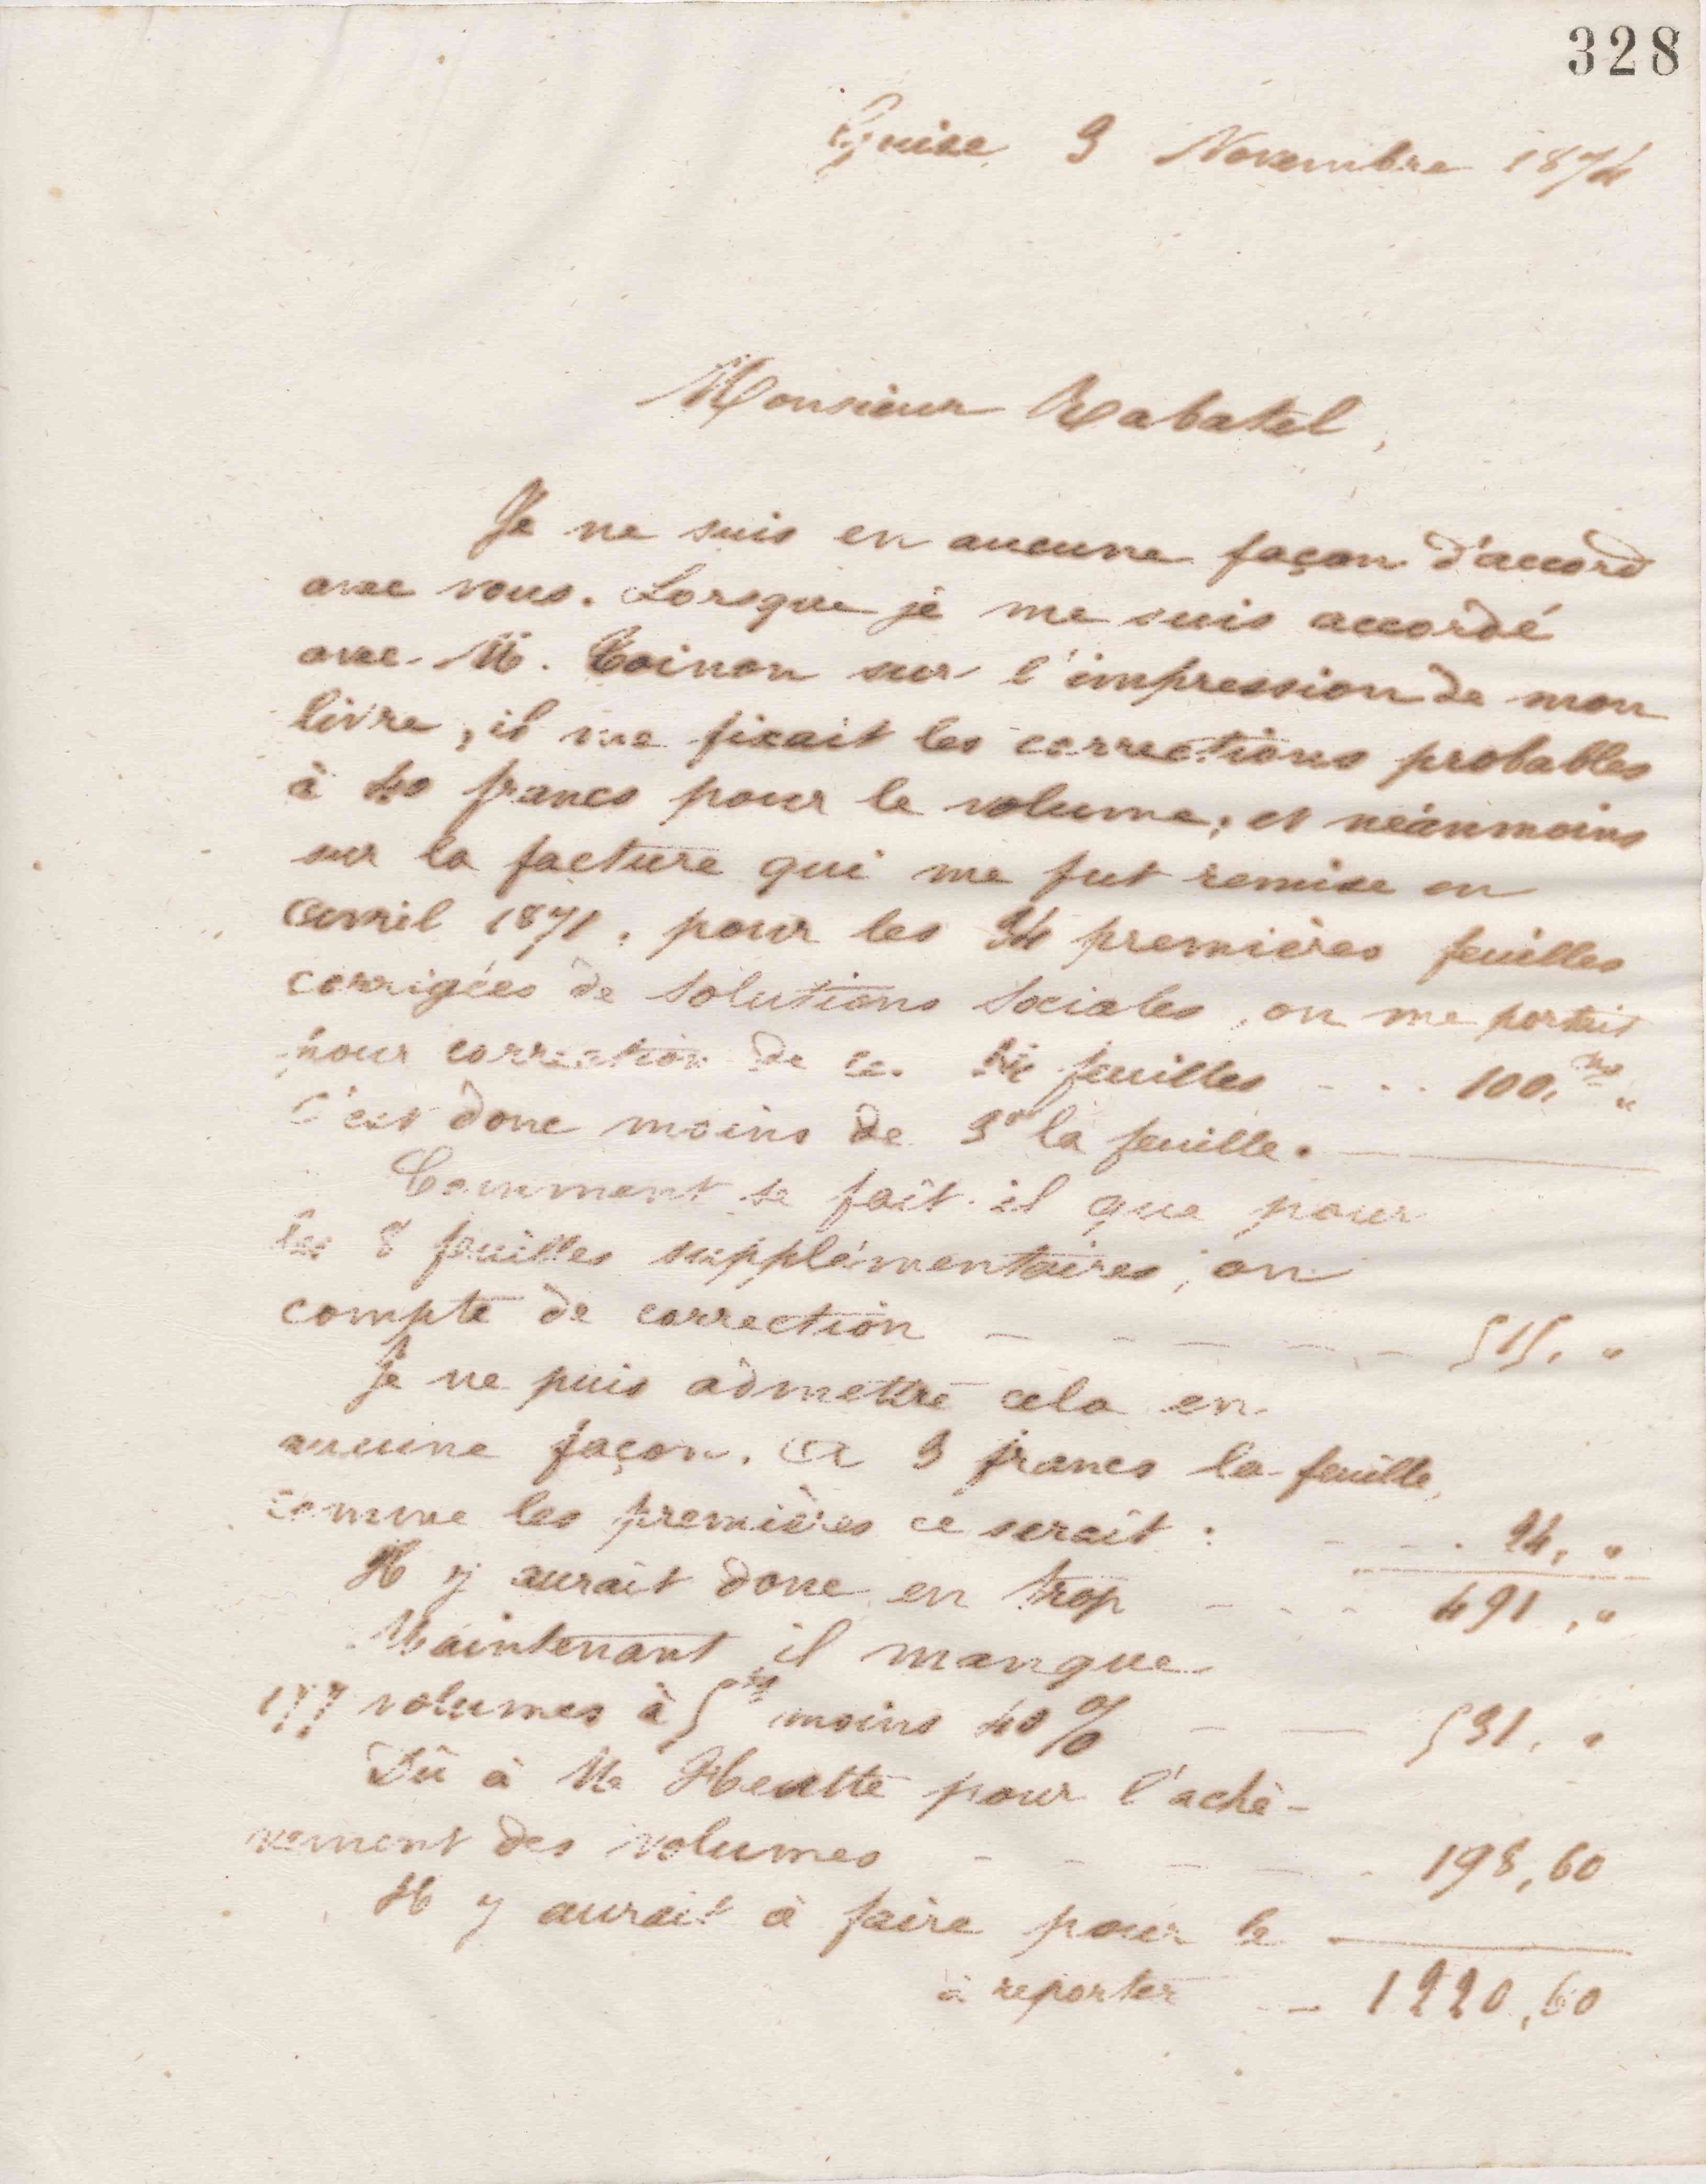 328
Guise 3 Novembre 1874
Monsieur Rabatel,
Je ne suis en aucune façon d'accord
avec vous. Lorsque je me suis accordé
avec M. Toinon sur l'impression de mon
livre, il me fixait les corrections probables
à 40 francs pour le volume, et néanmoins
sur la facture qui me fut remise en
avril 1871, pour les 34 premières feuilles
corrigées de Solutions Sociales, on me portait
pour correction de ce. 34 feuilles - - - 100, "
C'est donc moins de 3 la feuille.
Comment se fait-il que pour
les 8 feuilles supplémentaires, on
compte de correction - - - - - 515, "
Je ne puis admettre cela en
aucune façon. A 3 francs la feuille,
comme les premières ce serait : - - - 24, "
Il y aurait donc en trop - - - 491, "
Maintenant il manque
177 volumes à 5 moins 40 % - - 531, "
Dû à M. pour l'achè-
vement des volumes - - - - - 198,60
Il y aurait à faire pour le
à reporter - - 1220,60